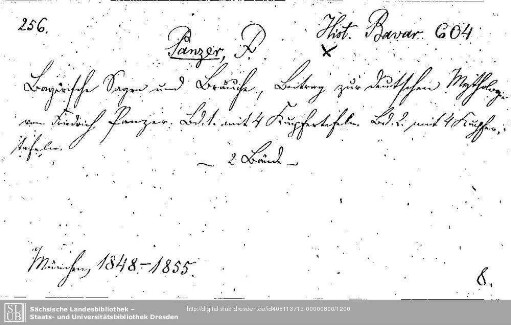 256.
Panzer, F.
Hist. Bavar. 604
Bayerische Sagen und Bräuche, Beitrag zur deutschen Mythologie
von Friedrich Panzer. Bd. 1. mit 4 Kupfertafeln. Bd. 2. mit 4 Kupfer-
tafeln.
— 2 Bände —
München, 1848–1855.
8.
Sächsische Landesbibliothek –
Staats- und Universitätsbibliothek Dresden